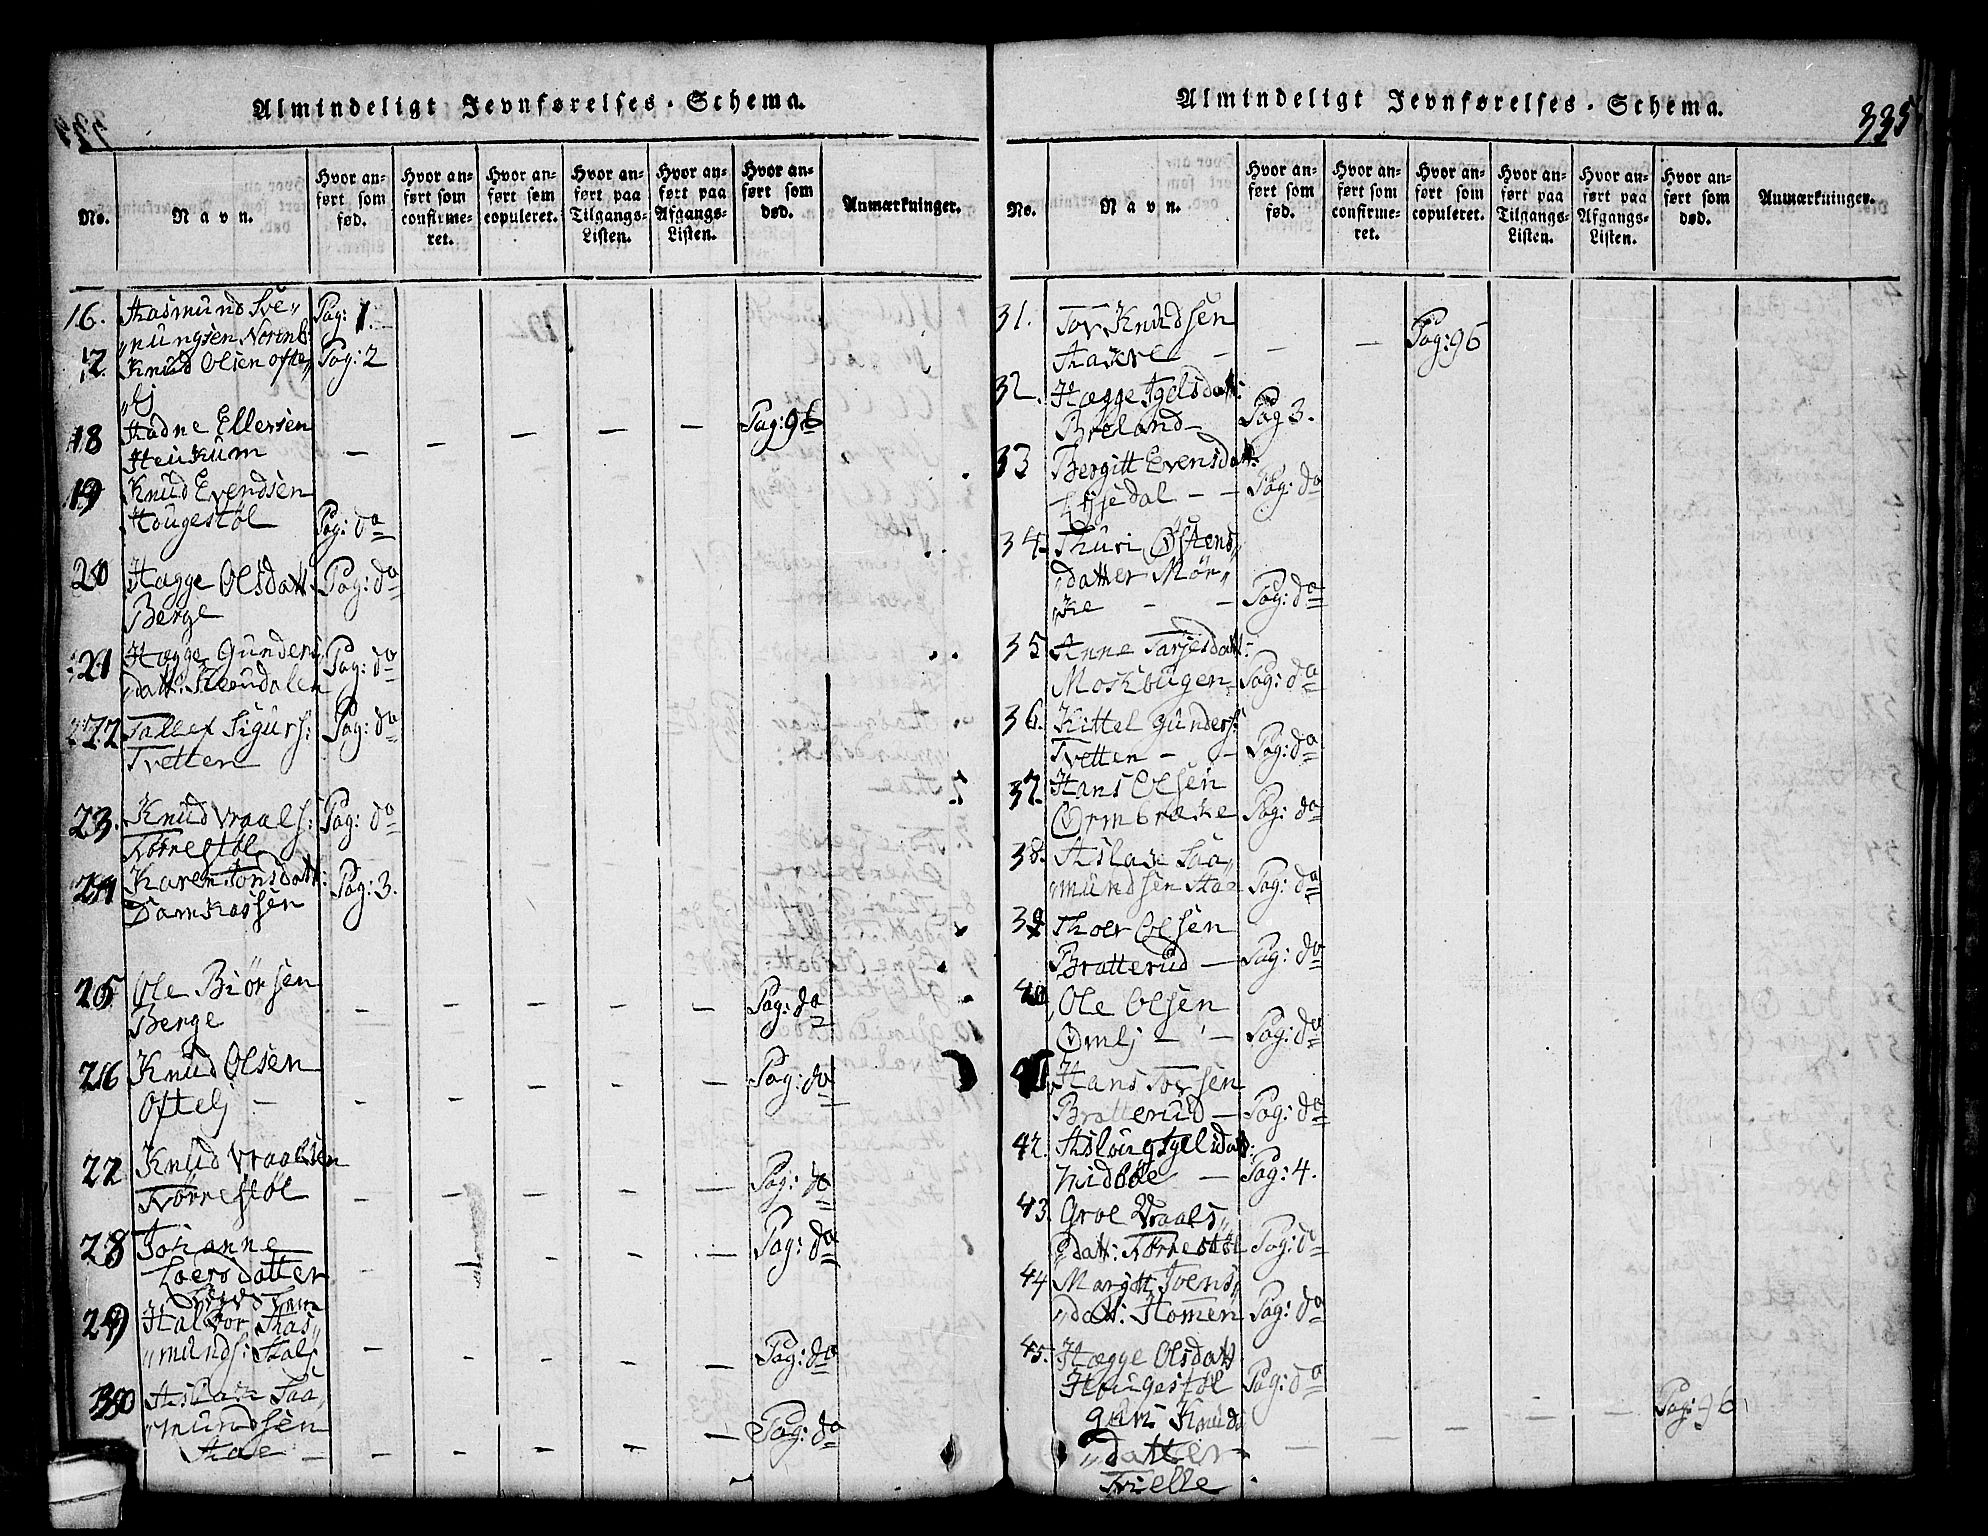 Almindeligt Jevnførelses-Schema.
No.
Navn.
Hvor anført som fød.
Hvor anført som confirmeret.
Hvor anført som copuleret.
Hvor anført paa Tilgangs-Listen.
Hvor anført paa Afgangs-Listen.
Hvor anført som død.
Anmærkninger.
16. Aasmund Sve„ Pag: 1.
„nungsen Normb:
17. Knud Olsen Ofte„ Pag: 2
„lj
18 Aadne Ellersen — — — — — Pag: 96
Heukum
19 Knud Evendsen
Hougestøl Pag: do
20 Hægge Olsdatt: Pag: do
Berge
21 Hægge Gunders„ Pag: do
„datt:
22 Tallef Sigurs: Pag: do
Tvetten
23. Knud Vraals: Pag: do
Norrestøl
24 Karen Jonsdatt: Pag: 3.
Damkassen
25 Ole Biørsen
Berge — — — — — Pag: do
26 Knud Olsen
Oftelj — — — — — — Pag: do
27 Knud Vraalsen
Norrestøl — — — — — Pag: do
28 Johanne
datter — — — — — Pag: do
29 Halvor Aas„
„munds: — — — — — Pag: do
30 Aslak Saa„
„mundsen
Aase — — — — — — Pag: do
Almindeligt Jevnførelses-Schema.
335
No.
Navn.
Hvor anført som fød.
Hvor anført som confirmeret.
Hvor anført som copuleret.
Hvor anført paa Tilgangs-Listen.
Hvor anført paa Afgangs-Listen.
Hvor anført som død.
Anmærkninger.
31. Tov Knudsen
— — — Pag: 96
32. Hægge Igelsdatt:
Brøland — Pag 3.
33 Bergitt Evensdatt:
— — Pag: do
34. Thuri Østens„
„datter Mør„
„ke — — Pag: do
35 Anne Tarjesdatt:
Moskbugen Pag: do
36. Kittel Gunders:
Tvetten — — Pag: do
37. Hans Olsen
Ormbrække Pag: do
38. Aslak Saa„
„mundsen Aase Pag: do
39 Thoer Olsen
Bratterud — Pag: do
40 Ole Olsen
Omlj — — Pag: do
41 Hans Torsen
Bratterud — Pag: do
42. Asloug Igelsdatt:
Midbøe — Pag: 4.
43. Groe Vraals„
„datt: Norrestøl Pag: do
44 Margitt Joens„
„datt: Homen Pag: do
45. Hægge Olsdatt
Hougestøl Pag: do
Guri Knuds — — — — — Pag: 96
„datter